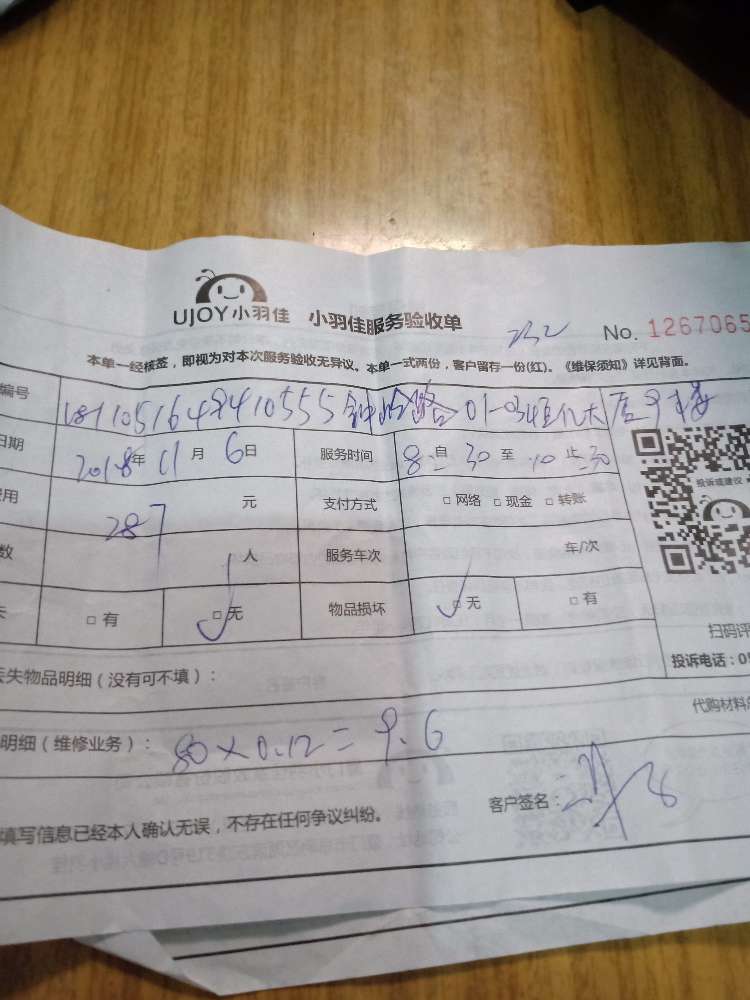 UJOY小羽佳 小羽佳服务验收单
No. 1267065
本单一经核签，即视为对本次服务验收无异议。本单一式两份，客户留存一份(红)。《维保须知》详见背面。
编号
日期 2018年 11月 6日 服务时间 8自30至10止30
费用 287 元 支付方式 □网络 □现金 □转账
数 人 服务车次 车/次
失 □有 □无 物品损坏 □无 □有
投诉或建议
扫码评
投诉电话：05
丢失物品明细（没有可不填）：
代购材料总
明细（维修业务）：80×0.12=9.6
填写信息已经本人确认无误，不存在任何争议纠纷。 客户签名：